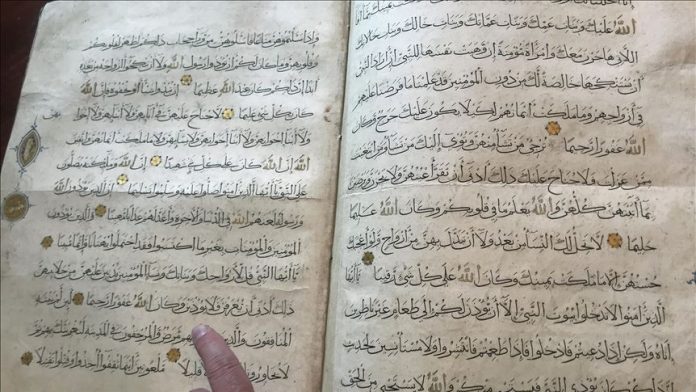 الله عليك وبنات عمك وبنات عماتك وبنات خالك وبنات خالاتك
اللاتي هاجرن معك وامرأة مؤمنة إن وهبت نفسها للنبي إن أراد النبي
أن يستنكحها خالصة لك من دون المؤمنين قد علمنا ما فرضنا عليهم
في أزواجهم وما ملكت أيمانهم لكيلا يكون عليك حرج وكان
الله غفورا رحيما ترجي من تشاء منهن وتؤوي إليك من تشاء ومن ابتغيت
ممن عزلت فلا جناح عليك ذلك أدنى أن تقر أعينهن ولا يحزن ويرضين
بما آتيتهن كلهن والله يعلم ما في قلوبكم وكان الله عليما
حليما لا يحل لك النساء من بعد ولا أن تبدل بهن من أزواج ولو أعجبك
حسنهن إلا ما ملكت يمينك وكان الله على كل شيء رقيبا يا أيها
الذين آمنوا لا تدخلوا بيوت النبي إلا أن يؤذن لكم إلى طعام غير ناظرين
إناه ولكن إذا دعيتم فادخلوا فإذا طعمتم فانتشروا ولا مستأنسين لحديث
إن ذلكم كان يؤذي النبي فيستحيي منكم والله لا يستحيي من الحق
وإذا سألتموهن متاعا فاسألوهن من وراء حجاب ذلكم أطهر لقلوبكم
وقلوبهن وما كان لكم أن تؤذوا رسول الله ولا أن تنكحوا أزواجه من بعده
أبدا إن ذلكم كان عند الله عظيما إن تبدوا شيئا أو تخفوه فإن الله
كان بكل شيء عليما لا جناح عليهن في آبائهن ولا أبنائهن ولا إخوانهن
ولا أبناء إخوانهن ولا أبناء أخواتهن ولا نسائهن ولا ما ملكت أيمانهن واتقين
الله إن الله كان على كل شيء شهيدا إن الله وملائكته يصلون
على النبي يا أيها الذين آمنوا صلوا عليه وسلموا تسليما إن الذين يؤذون الله
ورسوله لعنهم الله في الدنيا والآخرة وأعد لهم عذابا مهينا والذين يؤذون
المؤمنين والمؤمنات بغير ما اكتسبوا فقد احتملوا بهتانا وإثما مبينا
يا أيها النبي قل لأزواجك وبناتك ونساء المؤمنين يدنين عليهن من جلابيبهن
ذلك أدنى أن يعرفن فلا يؤذين وكان الله غفورا رحيما لئن لم ينته
المنافقون والذين مرض والمرجفون في المدينة لنغرينك بهم ثم
لا يجاورونك قليلا ملعونين أينما ثقفوا أخذوا وقتلوا تقتيلا